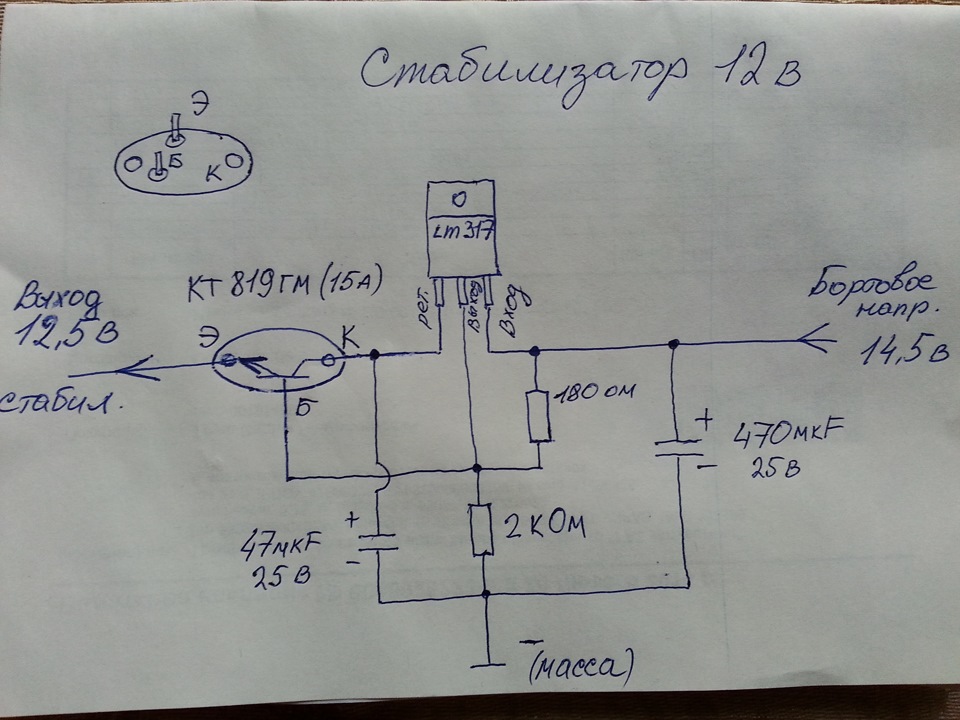 Стабилизатор 12 в
Э
Б
К
LM317
рег.
Выход
Вход
КТ 819 ГМ (15А)
Выход
12,5 В
стабил.
Э
К
Б
Бортовое
напр.
14,5 в
180 ом
+
470мкF
-
25 В
2 кОм
+
47мкF
-
25 В
–
(масса)